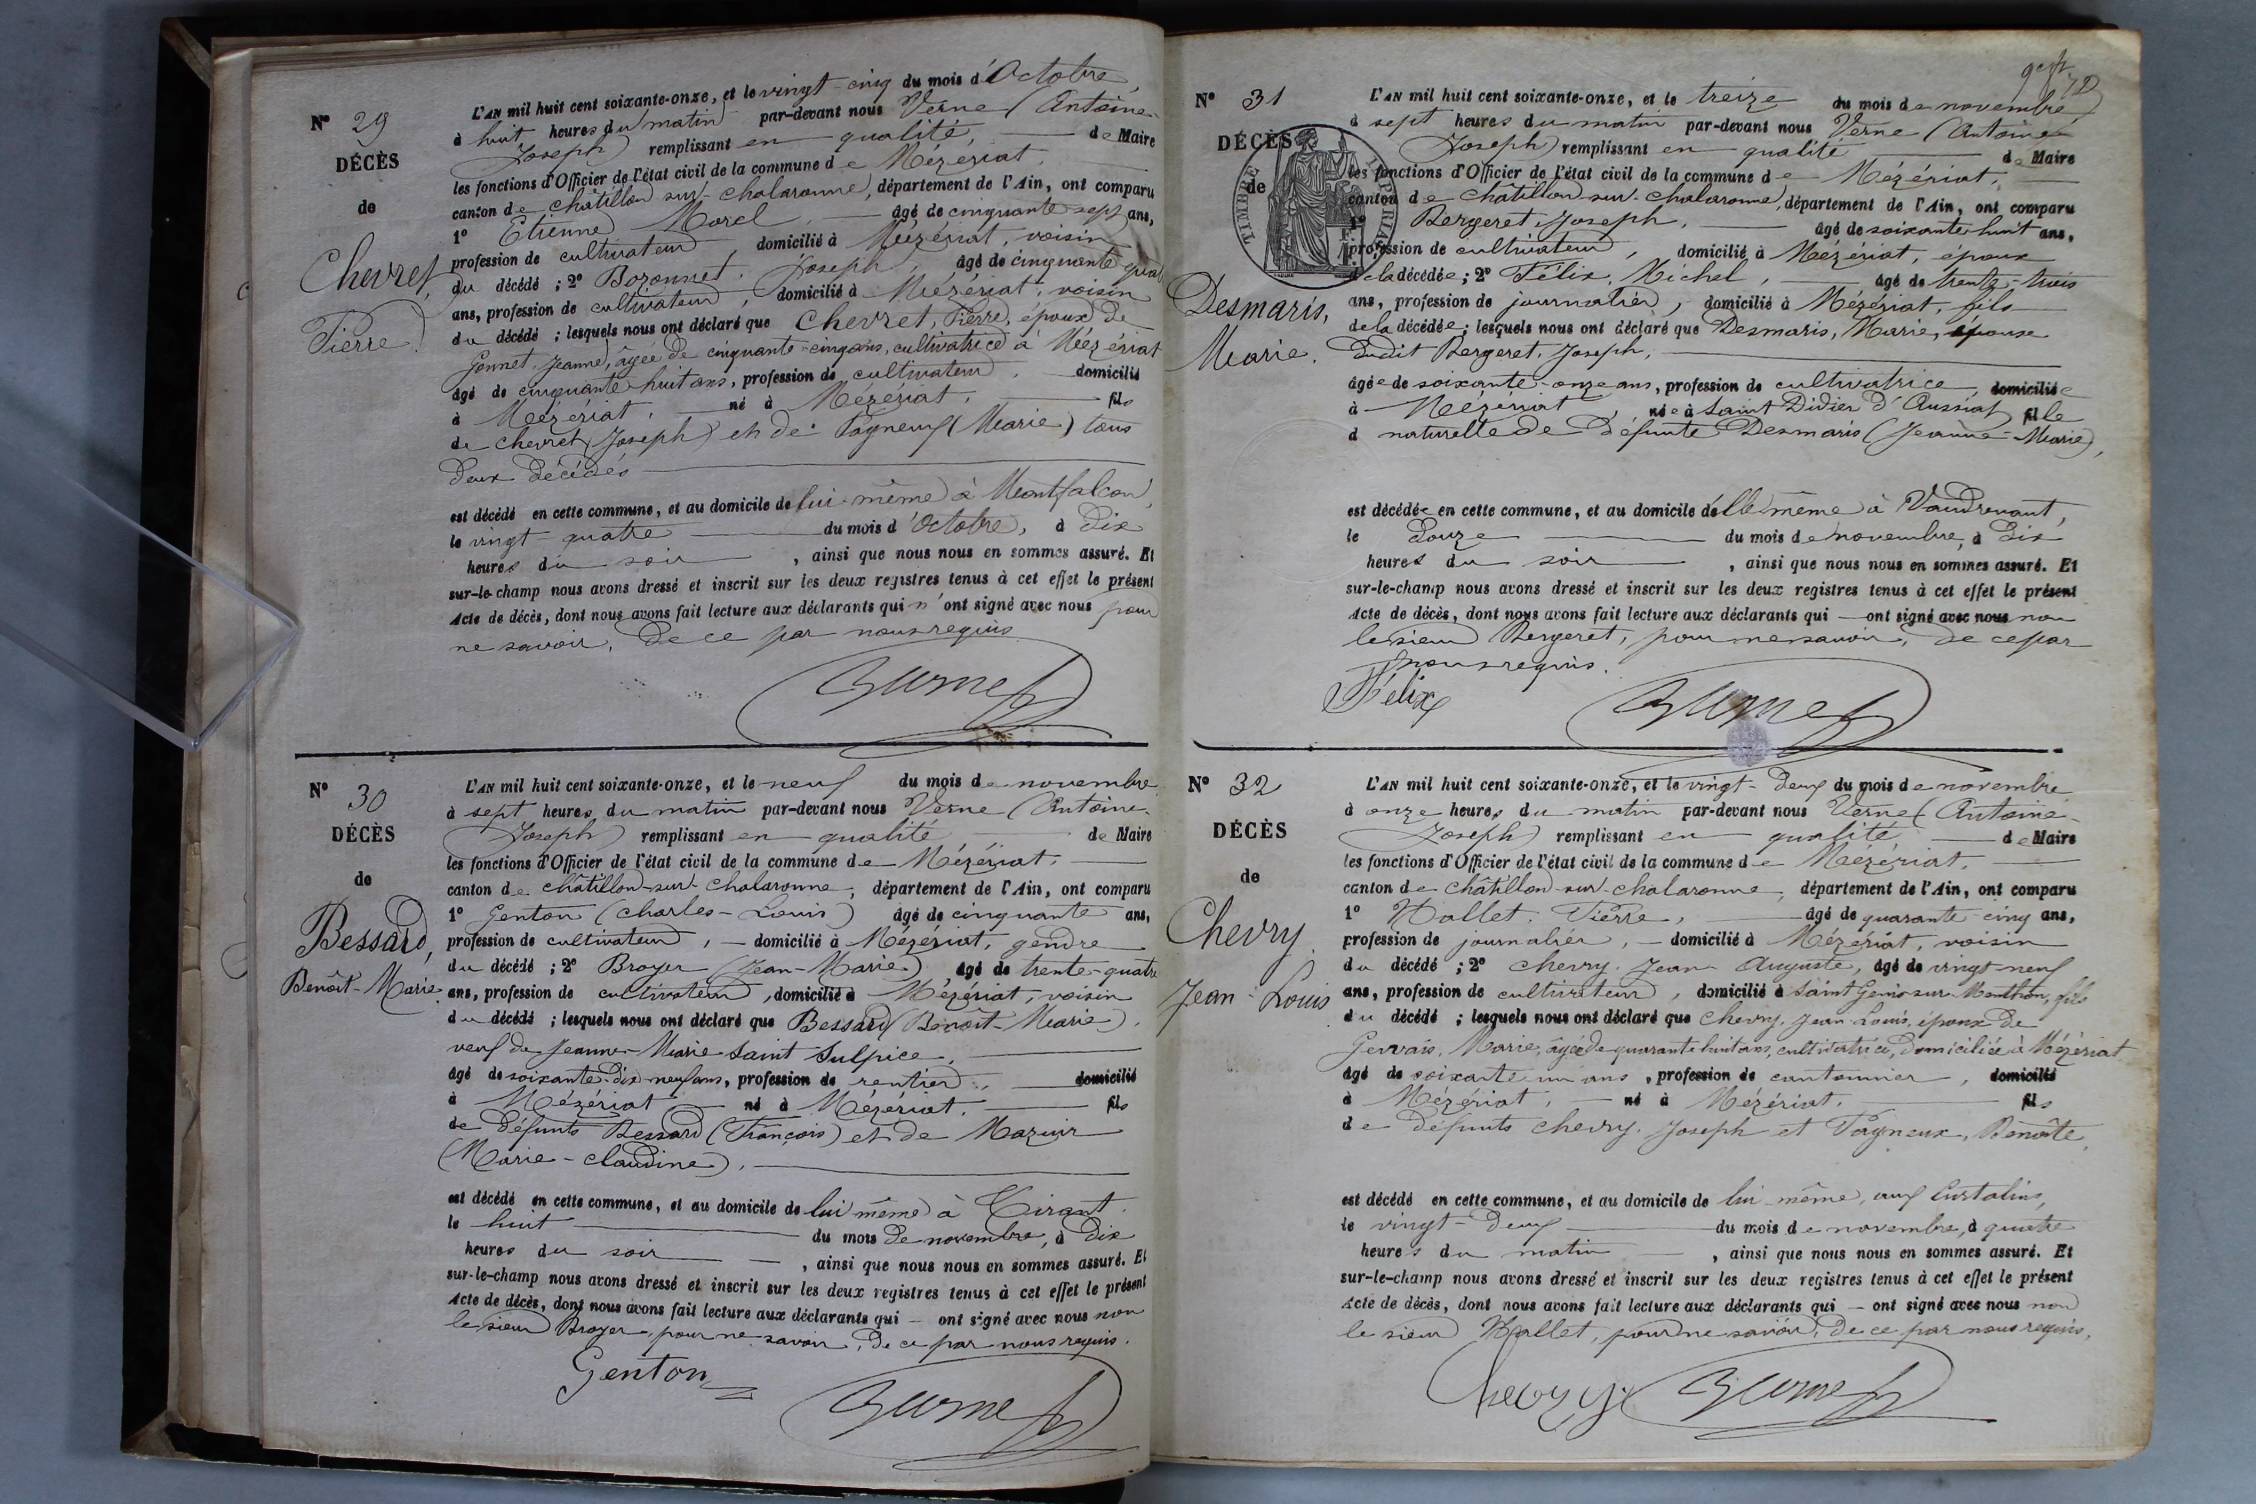 N° 29
DÉCÈS
de
Chevret,
Pierre.
L'AN mil huit cent soixante-onze, et le vingt-cinq du mois d'Octobre,
à huit heures du matin par-devant nous Verne (Antoine-
Joseph) remplissant en qualité de Maire
les fonctions d'Officier de l'état civil de la commune de Mézériat,
canton de Châtillon-sur-Chalaronne, département de l'Ain, ont comparu
1° Etienne Morel, âgé de cinquante sept ans,
profession de cultivateur, domicilié à Mézériat, voisin
du décédé ; 2° Bozonnet, Joseph, âgé de cinquante quatre
ans, profession de cultivateur, domicilié à Mézériat, voisin
du décédé ; lesquels nous ont déclaré que Chevret, Pierre, époux de
Gonnet, Jeanne, âgée de cinquante-cinq ans, cultivatrice à Mézériat
âgé de cinquante huit ans, profession de cultivateur, domicilié
à Mézériat, né à Mézériat, fils
de Chevret (Joseph) et de Pagneux (Marie) tous
deux décédés
est décédé en cette commune, et au domicile de lui-même à Montfalcon,
le vingt quatre du mois d'Octobre, à dix
heures du soir, ainsi que nous nous en sommes assuré. Et
sur-le-champ nous avons dressé et inscrit sur les deux registres tenus à cet effet le présent
Acte de décès, dont nous avons fait lecture aux déclarants qui n'ont signé avec nous pour
ne savoir, de ce par nous requis.
Verne
N° 30
DÉCÈS
de
Bessard,
Benoît-Marie.
L'AN mil huit cent soixante-onze, et le neuf du mois de novembre
à sept heures du matin par-devant nous Verne (Antoine-
Joseph) remplissant en qualité de Maire
les fonctions d'Officier de l'état civil de la commune de Mézériat,
canton de Châtillon-sur-Chalaronne, département de l'Ain, ont comparu
1° Genton (Charles-Louis) âgé de cinquante ans,
profession de cultivateur, domicilié à Mézériat, gendre
du décédé ; 2° Broyer (Jean-Marie) âgé de trente-quatre
ans, profession de cultivateur, domicilié à Mézériat, voisin
du décédé ; lesquels nous ont déclaré que Bessard (Benoît-Marie),
veuf de Jeanne-Marie Saint Sulpice,
âgé de soixante-dix neuf ans, profession de rentier, domicilié
à Mézériat né à Mézériat, fils
de défunts Bessard (François) et de Mazuir
(Marie-Claudine),
est décédé en cette commune, et au domicile de lui même à Tirant,
le huit du mois de novembre, à dix
heures du soir, ainsi que nous nous en sommes assuré. Et
sur-le-champ nous avons dressé et inscrit sur les deux registres tenus à cet effet le présent
Acte de décès, dont nous avons fait lecture aux déclarants qui ont signé avec nous non
le sieur Broyer, pour ne savoir, de ce par nous requis.
Genton
Verne
N° 31
DÉCÈS
de
TIMBRE IMPÉRIAL
Desmaris,
Marie.
L'AN mil huit cent soixante-onze, et le treize du mois de novembre
à sept heures du matin par-devant nous Verne (Antoine-
Joseph) remplissant en qualité de Maire
les fonctions d'Officier de l'état civil de la commune de Mézériat,
canton de Châtillon-sur-Chalaronne, département de l'Ain, ont comparu
1° Bergeret, Joseph, âgé de soixante-huit ans,
profession de cultivateur, domicilié à Mézériat, époux
de la décédée ; 2° Félix, Michel, âgé de trente-trois
ans, profession de journalier, domicilié à Mézériat, fils
de la décédée ; lesquels nous ont déclaré que Desmaris, Marie, épouse
dudit Bergeret, Joseph,
âgée de soixante-onze ans, profession de cultivatrice, domiciliée
à Mézériat, née à Saint Didier d'Aussiat, fille
d naturelle de défunte Desmaris (Jeanne-Marie),
est décédée en cette commune, et au domicile d'elle même à Vaudrenant,
le douze du mois de novembre, à dix
heures du soir, ainsi que nous nous en sommes assuré. Et
sur-le-champ nous avons dressé et inscrit sur les deux registres tenus à cet effet le présent
Acte de décès, dont nous avons fait lecture aux déclarants qui ont signé avec nous non
le sieur Bergeret, pour ne savoir, de ce par
nous requis.
Félix
Verne
N° 32
DÉCÈS
de
Chevry,
Jean-Louis
L'AN mil huit cent soixante-onze, et le vingt-deux du mois de novembre
à onze heures du matin par-devant nous Verne (Antoine-
Joseph) remplissant en qualité de Maire
les fonctions d'Officier de l'état civil de la commune de Mézériat,
canton de Châtillon-sur-Chalaronne, département de l'Ain, ont comparu
1° Hallet, Pierre, âgé de quarante-cinq ans,
profession de journalier, domicilié à Mézériat, voisin
du décédé ; 2° Chevry, Jean Auguste, âgé de vingt-neuf
ans, profession de cultivateur, domicilié à Saint Genis sur Menthon, fils
du décédé ; lesquels nous ont déclaré que Chevry, Jean Louis, époux de
Gervais, Marie, âgée de quarante huit ans, cultivatrice, domiciliée à Mézériat
âgé de soixante un ans, profession de cantonnier, domicilié
à Mézériat, né à Mézériat, fils
de défunts Chevry, Joseph et Pagneux, Benoîte,
est décédé en cette commune, et au domicile de lui même, aux
le vingt-deux du mois de novembre, à quatre
heures du matin, ainsi que nous nous en sommes assuré. Et
sur-le-champ nous avons dressé et inscrit sur les deux registres tenus à cet effet le présent
Acte de décès, dont nous avons fait lecture aux déclarants qui ont signé avec nous non
le sieur Hallet, pour ne savoir, de ce par nous requis.
Chevry
Verne